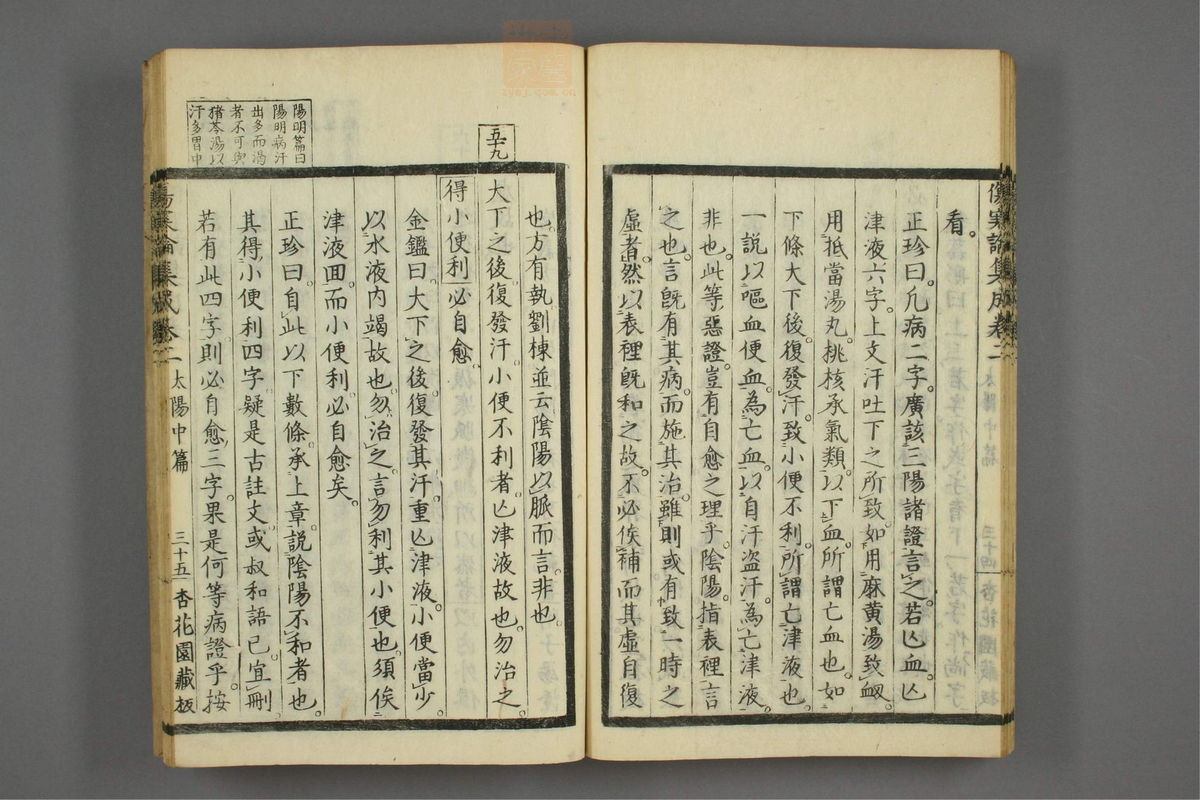 傷寒論集成卷二
看。
正珍曰。凡病二字。廣該三陽諸證言之。若亡血。亡
津液。六字。上文汗吐下之所致。如用麻黄湯致衂。
用抵當湯丸。桃核承氣類。以下血。所謂亡血也。如
下條大下後。復發汗。致小便不利。所謂亡津液也。
一說。以嘔血便血。為亡血。以自汗盗汗。為亡津液。
非也。此等惡證。豈有自愈之理乎。陰陽。指表裡言
之也。言既有其病。而施其治。雖則或有致一時之
虛者。然以表裡既和之故。不必俟補。而其虛自復
也。方有執劉棟並云。陰陽以脈而言。非也。
五十九
大下之後。復發汗。小便不利者。亾津液故也。勿治之。
得小便利。必自愈。
金鑑曰。大下之後。復發其汗。重亾津液。小便當少。
以水液内竭故也。勿治之。言勿利其小便也。須俟
津液回。而小便利。必自愈矣。
正珍曰。自此以下數條。承上章。說陰陽不和者也。
其得小便利四字。疑是古註文。或叔和語已。宜刪
若有此四字。則必自愈三字。果是何等病證乎。按
陽明篇曰
陽明病汗
出多而渴
者不可與
猪苓湯以
汗多胃中
傷寒論集成卷二 太陽中篇 三十五 杏花園藏板